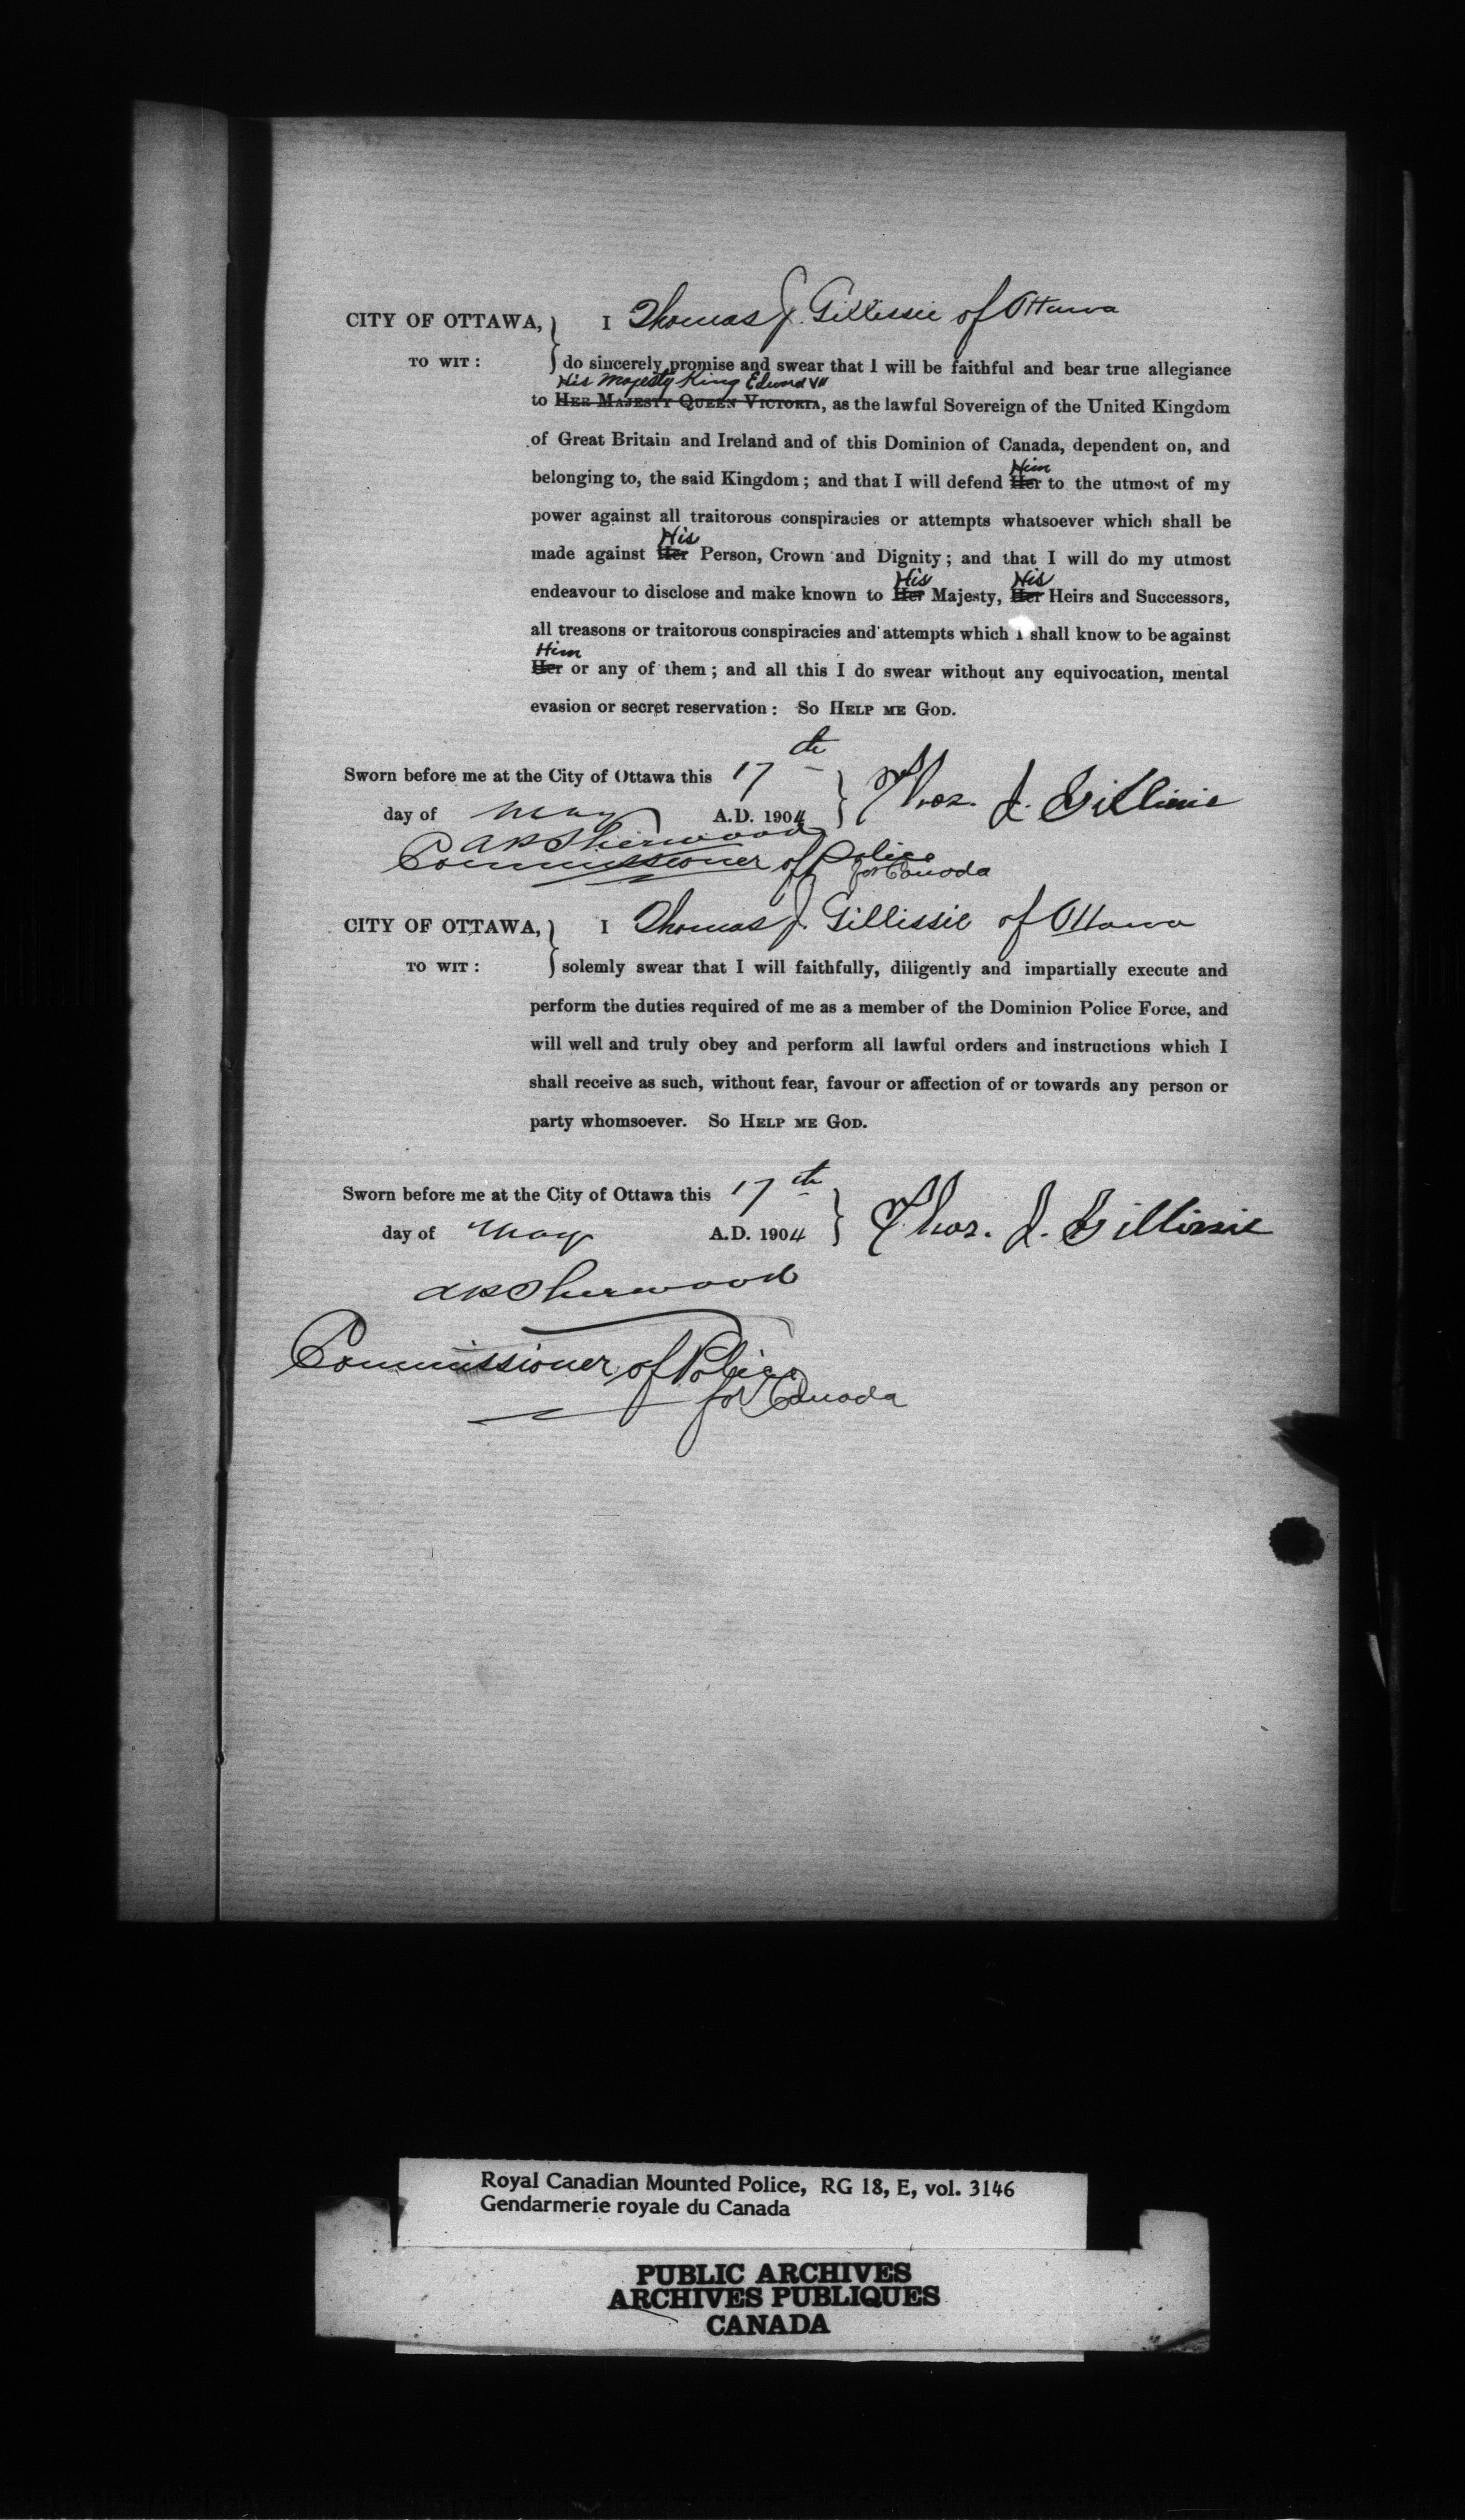 CITY OF OTTAWA, I Thomas J. Gillissie of Ottawa
TO WIT: do sincerely promise and swear that I will be faithful and bear true allegiance
His Majesty King Edward VII
to HER MAJESTY QUEEN VICTORIA, as the lawful Sovereign of the United Kingdom
of Great Britain and Ireland and of this Dominion of Canada, dependent on, and
Him
belonging to, the said Kingdom; and that I will defend Her to the utmost of my
power against all traitorous conspiracies or attempts whatsoever which shall be
His
made against Her Person, Crown and Dignity; and that I will do my utmost
His His
endeavour to disclose and make known to Her Majesty, Her Heirs and Successors,
all treasons or traitorous conspiracies and attempts which I shall know to be against
Him
Her or any of them; and all this I do swear without any equivocation, mental
evasion or secret reservation: SO HELP ME GOD.
Sworn before me at the City of Ottawa this 17th
day of May A.D. 1904 Thos. J. Gillissie
A P Sherwood
Commissioner of Police
for Canada
CITY OF OTTAWA, I Thomas J. Gillissie of Ottawa
TO WIT: solemly swear that I will faithfully, diligently and impartially execute and
perform the duties required of me as a member of the Dominion Police Force, and
will well and truly obey and perform all lawful orders and instructions which I
shall receive as such, without fear, favour or affection of or towards any person or
party whomsoever. SO HELP ME GOD.
Sworn before me at the City of Ottawa this 17th
day of May A.D. 1904 Thos. J. Gillissie
A P Sherwood
Commissioner of Police
for Canada
Royal Canadian Mounted Police, RG 18, E, vol. 3146
Gendarmerie royale du Canada
PUBLIC ARCHIVES
ARCHIVES PUBLIQUES
CANADA